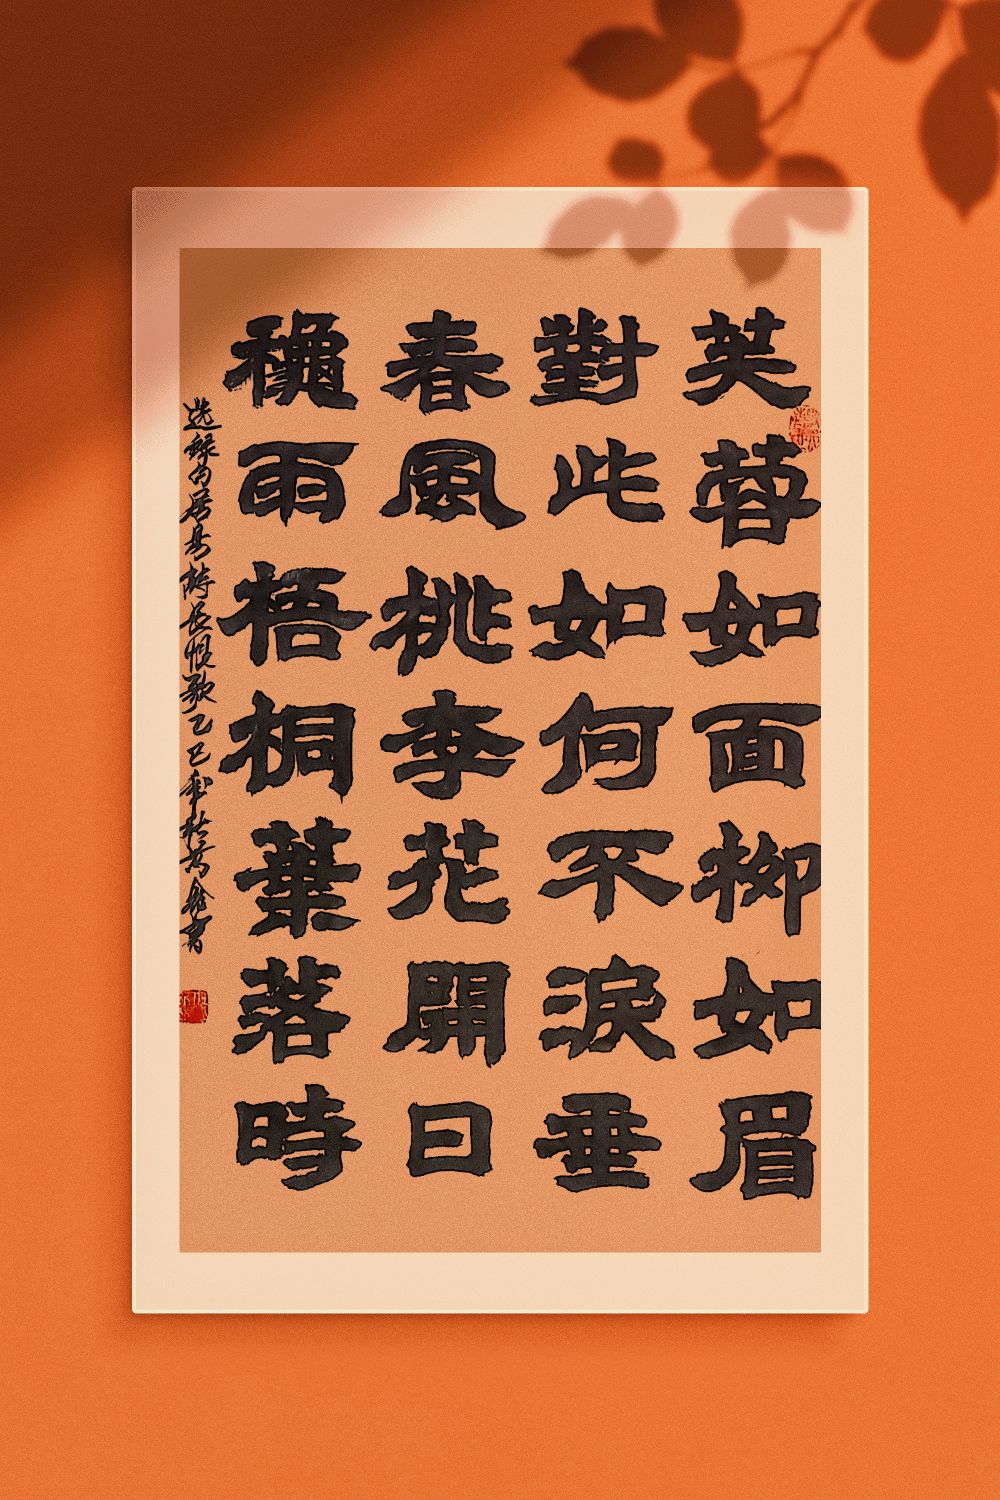 芙蓉如面柳如眉
對此如何不淚垂
春風桃李花開日
穐雨梧桐葉落時
选錄白居易詩長恨歌乙巳年書